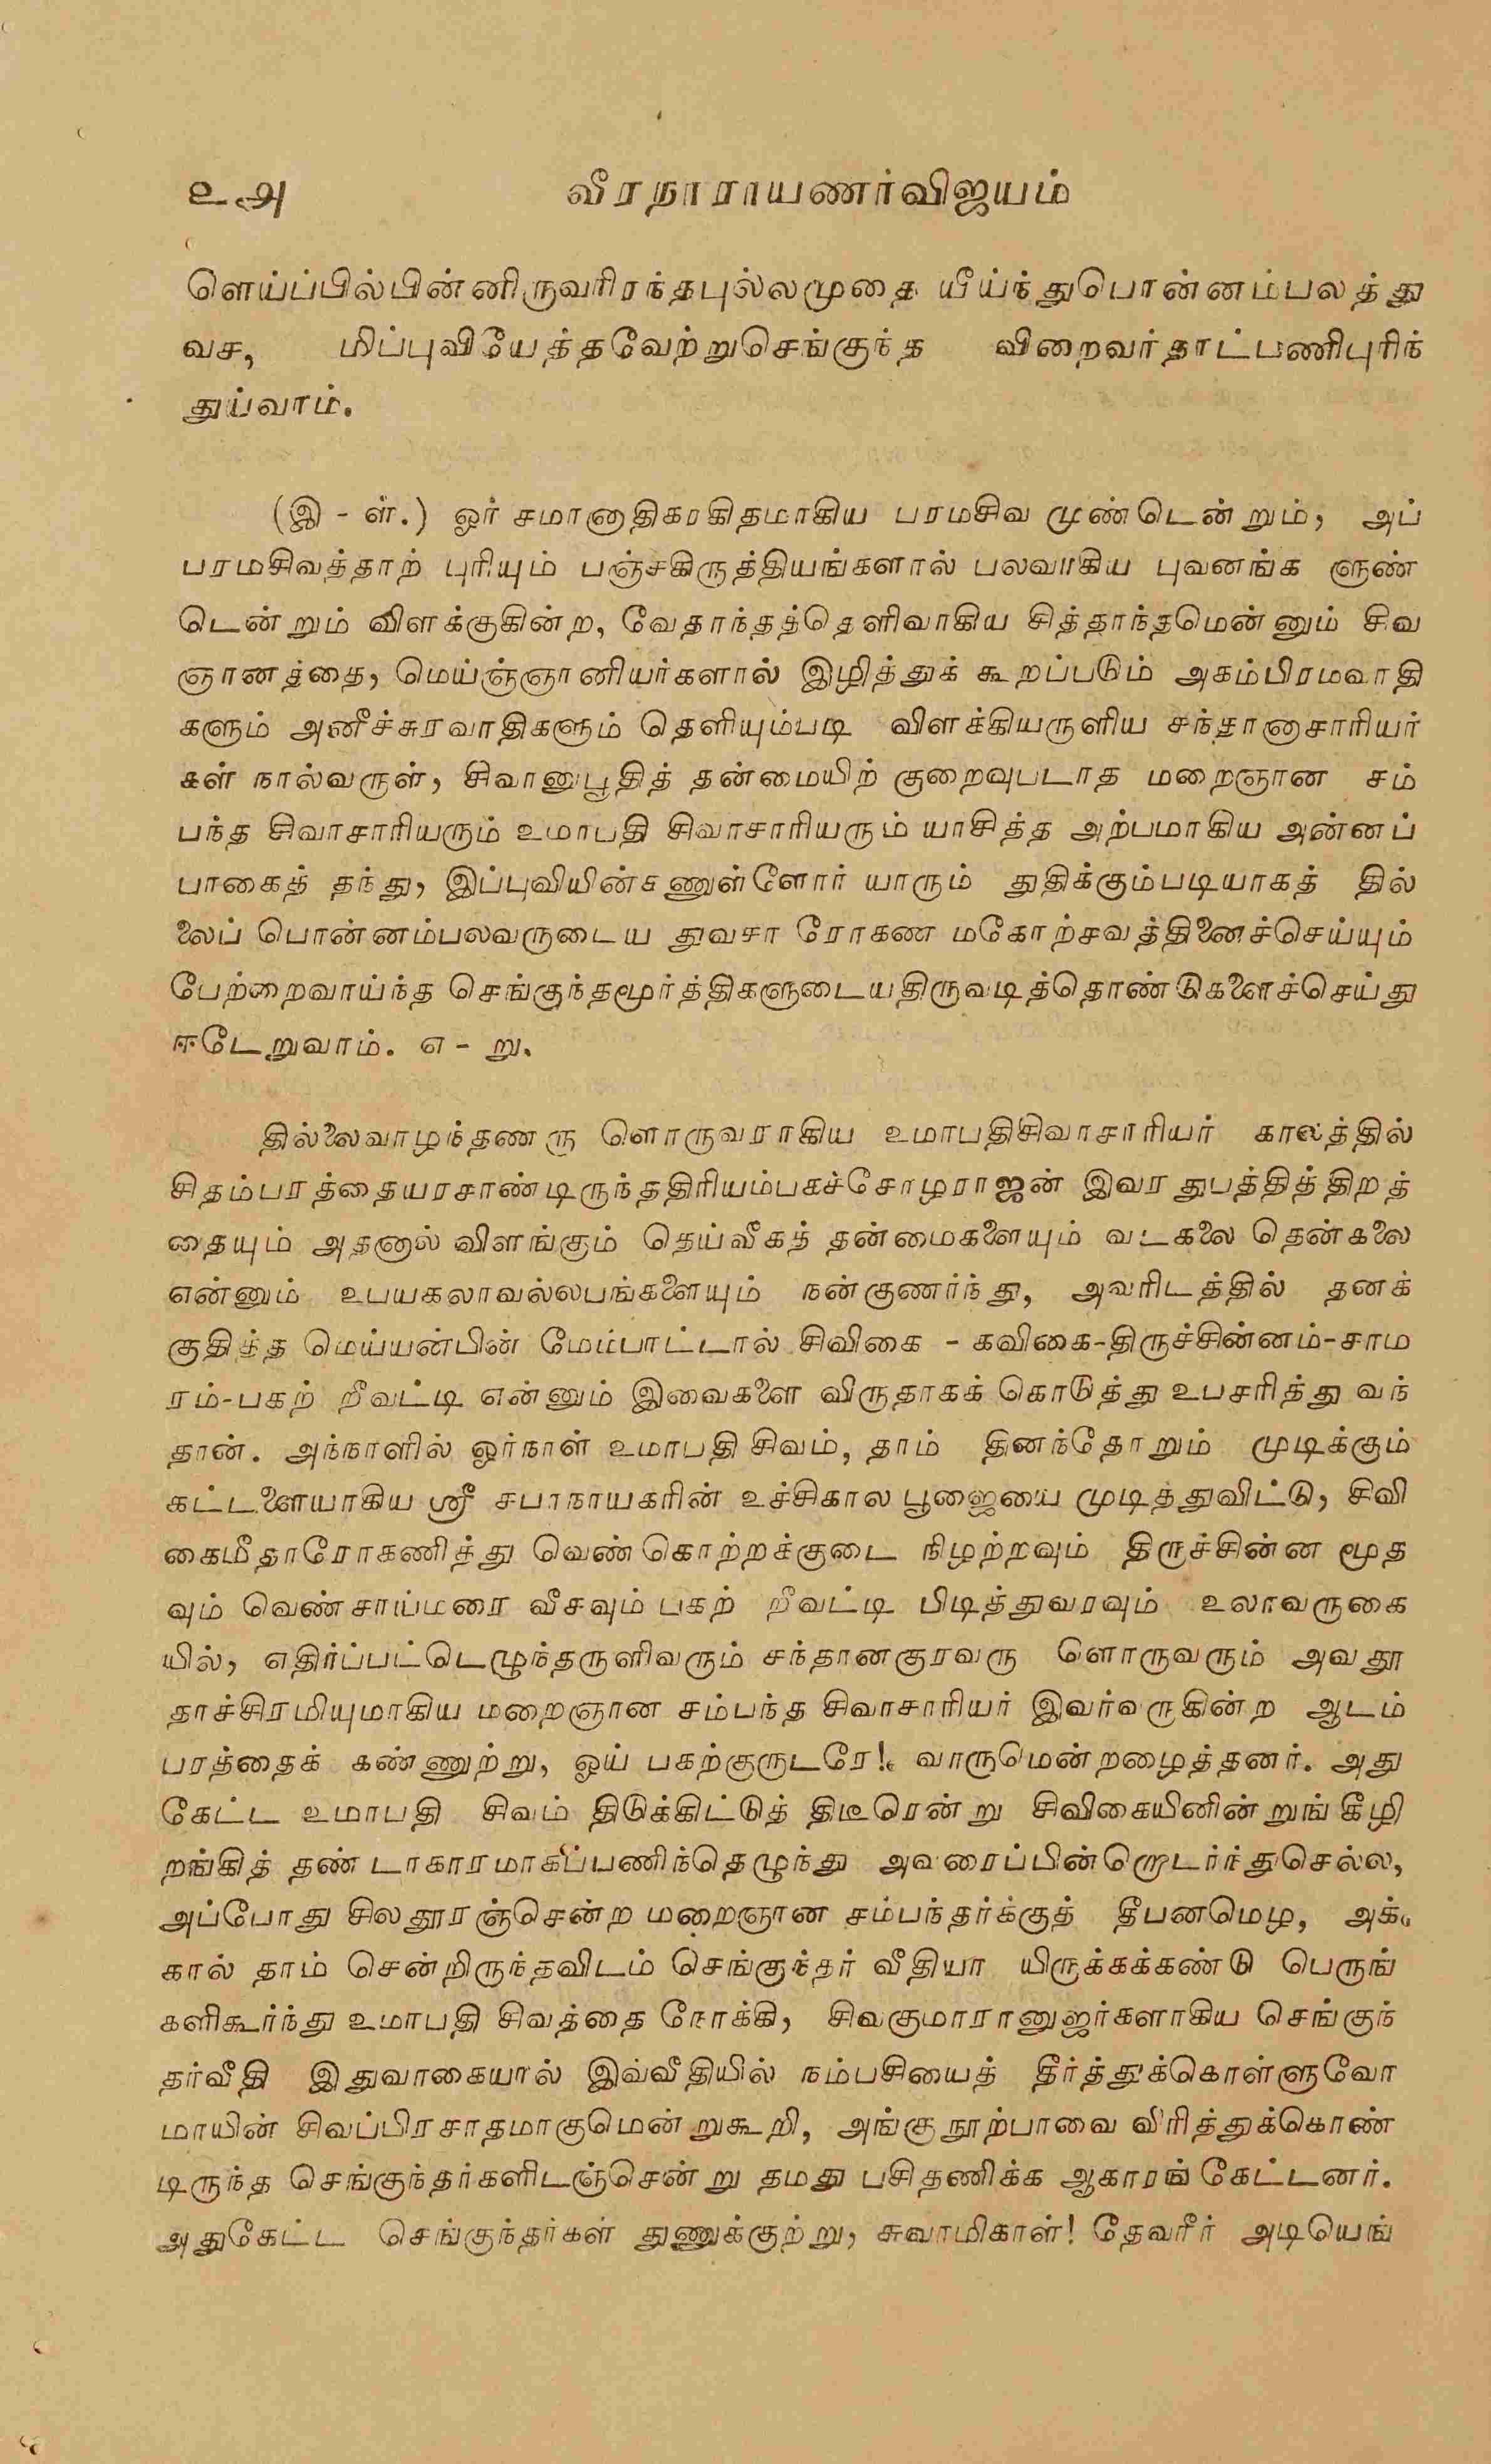 ௨௮ வீரநாராயணர்விஜயம்
ளெய்ப்பில்பின்னிருவரிரந்தபுல்லமுதை யீய்ந்துபொன்னம்பலத்து
வச, மிப்புவியேத்தவேற்றுசெங்குந்த விறைவர்தாட்பணிபுரிந்
துய்வாம்.
(இ - ள்.) ஓர் சமானாதிகரகிதமாகிய பரமசிவ முண்டென்றும், அப்
பரமசிவத்தாற் புரியும் பஞ்சகிருத்தியங்களால் பலவாகிய புவனங்க ளுண்
டென்றும் விளக்குகின்ற, வேதாந்தத்தெளிவாகிய சித்தாந்தமென்னும் சிவ
ஞானத்தை, மெய்ஞ்ஞானியர்களால் இழித்துக் கூறப்படும் அகம்பிரமவாதி
களும் அனீச்சுரவாதிகளும் தெளியும்படி விளக்கியருளிய சந்தானாசாரியர்
கள் நால்வருள், சிவானுபூதித் தன்மையிற் குறைவுபடாத மறைஞான சம்
பந்த சிவாசாரியரும் உமாபதி சிவாசாரியரும் யாசித்த அற்பமாகிய அன்னப்
பாகைத் தந்து, இப்புவியின்கணுள்ளோர் யாரும் துதிக்கும்படியாகத் தில்
லைப் பொன்னம்பலவருடைய துவசா ரோகண மகோற்சவத்தினைச்செய்யும்
பேற்றைவாய்ந்த செங்குந்தமூர்த்திகளுடையதிருவடித்தொண்டுகளைச்செய்து
ஈடேறுவாம். எ - று.
தில்லைவாழந்தணரு ளொருவராகிய உமாபதிசிவாசாரியர் காலத்தில்
சிதம்பரத்தையரசாண்டிருந்ததிரியம்பகச்சோழராஜன் இவர துபத்தித்திறத்
தையும் அதனால் விளங்கும் தெய்வீகத் தன்மைகளையும் வடகலை தென்கலை
என்னும் உபயகலாவல்லபங்களையும் நன்குணர்ந்து, அவரிடத்தில் தனக்
குதித்த மெய்யன்பின் மேம்பாட்டால் சிவிகை - கவிகை-திருச்சின்னம்-சாம
ரம்-பகற் றீவட்டி என்னும் இவைகளை விருதாகக் கொடுத்து உபசரித்து வந்
தான். அந்நாளில் ஓர்நாள் உமாபதி சிவம், தாம் தினந்தோறும் முடிக்கும்
கட்டளையாகிய ஸ்ரீ சபாநாயகரின் உச்சிகால பூஜையை முடித்துவிட்டு, சிவி
கைமீதாரோகணித்து வெண்கொற்றக்குடை நிழற்றவும் திருச்சின்ன மூத
வும் வெண்சாய்மரை வீசவும் பகற் றீவட்டி பிடித்துவரவும் உலாவருகை
யில், எதிர்ப்பட்டெழுந்தருளிவரும் சந்தானகுரவரு ளொருவரும் அவதூ
தாச்சிரமியுமாகிய மறைஞான சம்பந்த சிவாசாரியர் இவர்வருகின்ற ஆடம்
பரத்தைக் கண்ணுற்று, ஓய் பகற்குருடரே! வாருமென்றழைத்தனர். அது
கேட்ட உமாபதி சிவம் திடுக்கிட்டுத் திடீரென்று சிவிகையினின்றுங் கீழி
றங்கித் தண்டாகாரமாகப்பணிந்தெழுந்து அவரைப்பின்றொடர்ந்துசெல்ல,
அப்போது சிலதூரஞ்சென்ற மறைஞான சம்பந்தர்க்குத் தீபனமெழ, அக்
கால் தாம் சென்றிருந்தவிடம் செங்குந்தர் வீதியா யிருக்கக்கண்டு பெருங்
களிகூர்ந்து உமாபதி சிவத்தை நோக்கி, சிவகுமாரானுஜர்களாகிய செங்குந்
தர்வீதி இதுவாகையால் இவ்வீதியில் நம்பசியைத் தீர்த்துக்கொள்ளுவோ
மாயின் சிவப்பிரசாதமாகுமென்றுகூறி, அங்குநூற்பாவை விரித்துக்கொண்
டிருந்த செங்குந்தர்களிடஞ்சென்று தமது பசிதணிக்க ஆகாரங் கேட்டனர்.
அதுகேட்ட செங்குந்தர்கள் துணுக்குற்று, சுவாமிகாள்! தேவரீர் அடியெங்